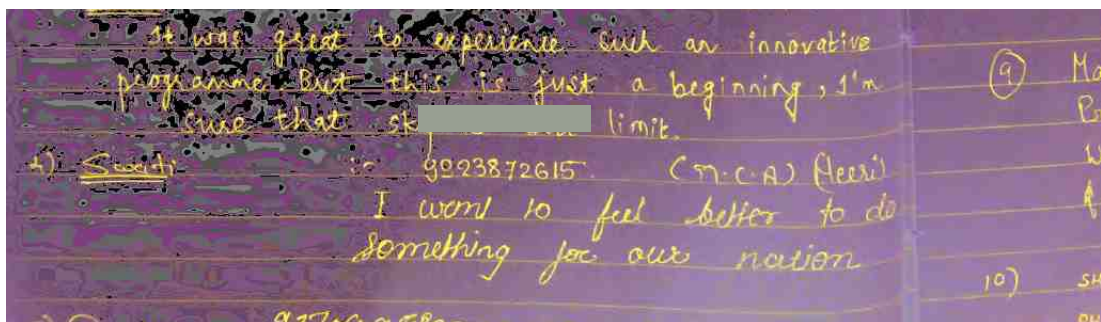 It was great to experience such an innovative
programme. But this is just a beginning, I'm
sure that limit.
Swati :- 9023872615. (M.C.A)
I want to feel better to do
something for our nation
9
10)